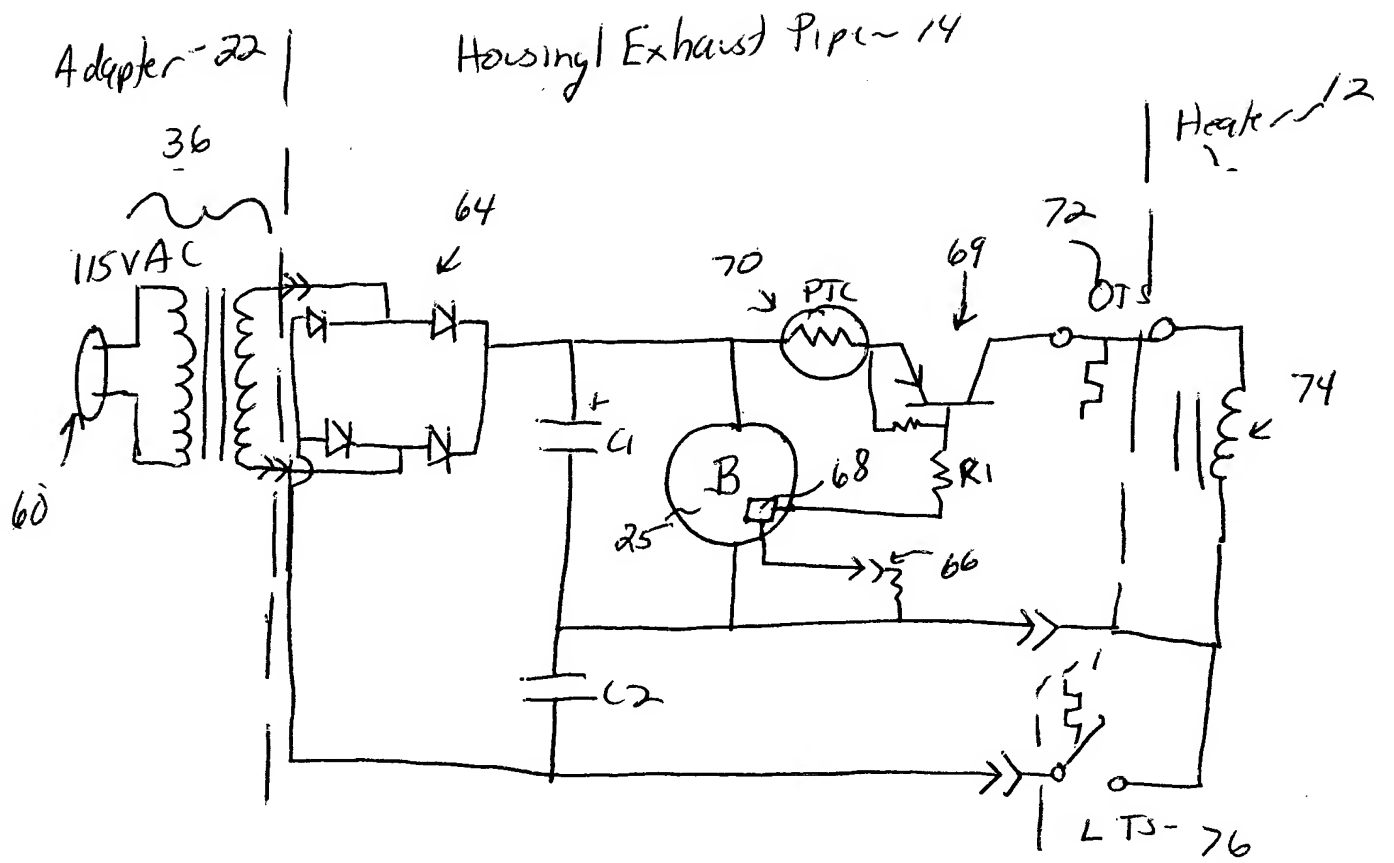 Adapter - 22
Housing / Exhaust Pipe ~ 14
Heater ~ 12
36
64
72
115VAC
70
PTC
69
OTS
74
+
C1
B
68
R1
60
25
66
C2
LTS - 76